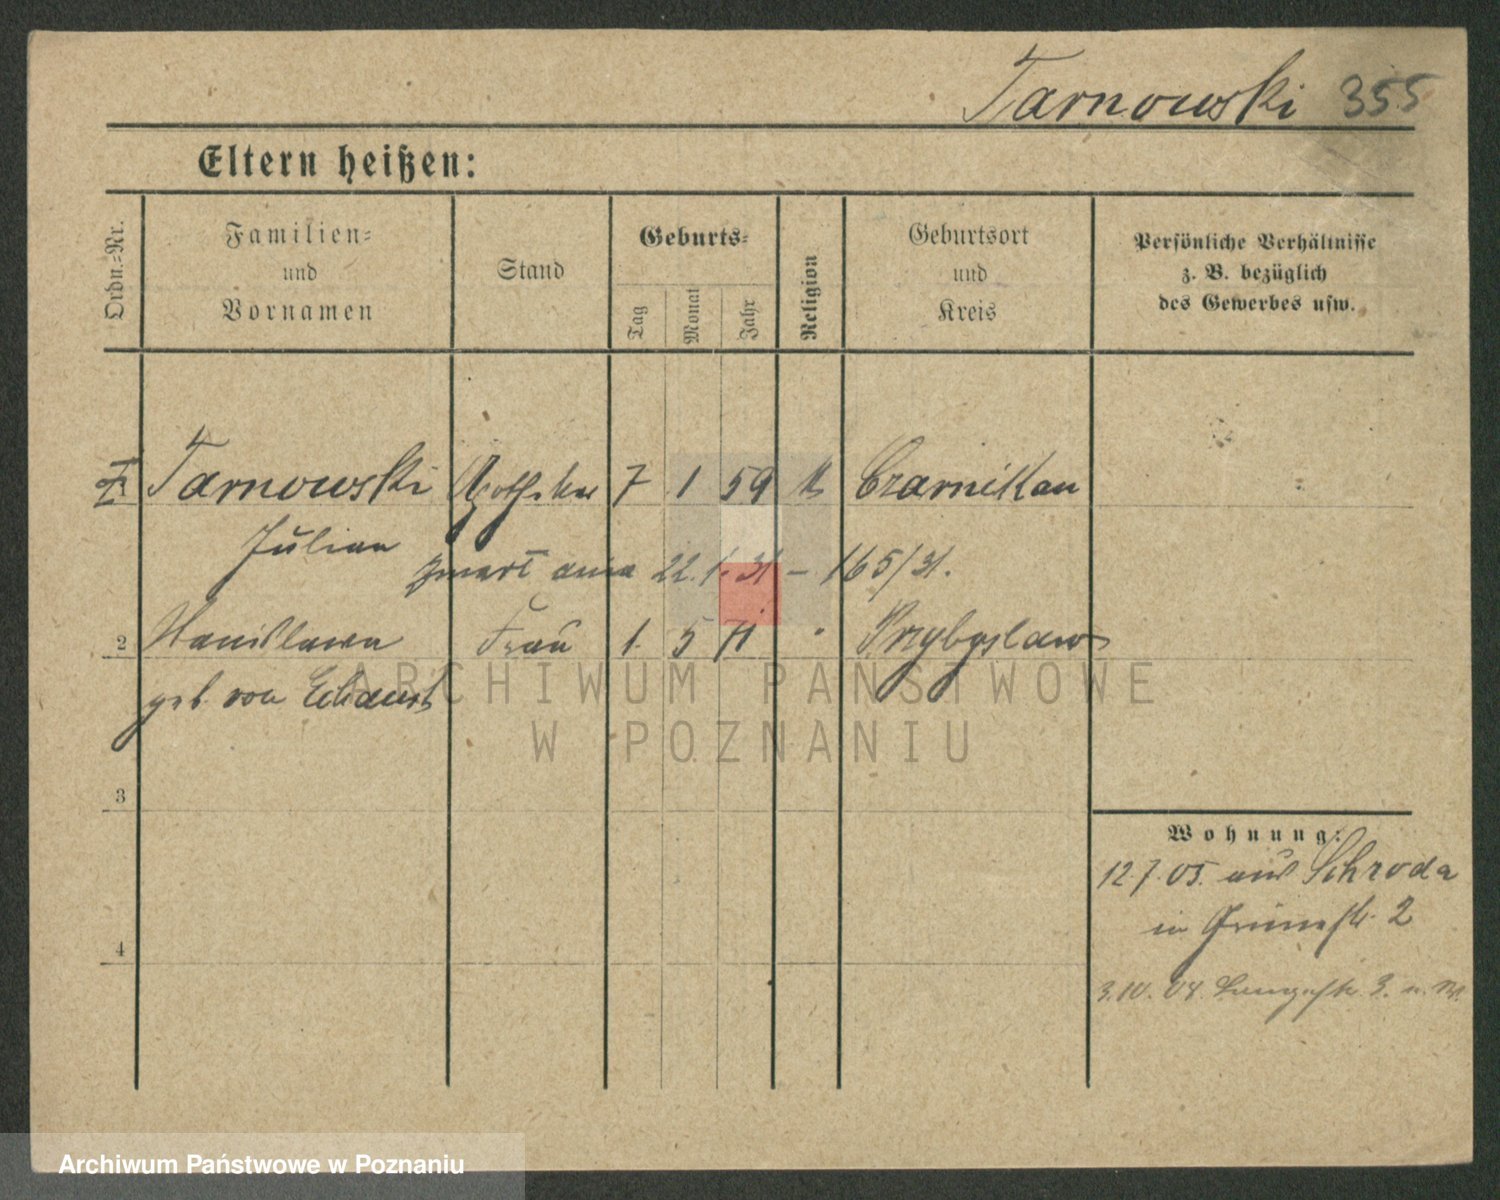 Tarnowski 355
Eltern heißen:
Ordn.-Nr.
Familien-
und
Vornamen
Stand
Geburts-
Tag
Monat
Jahr
Religion
Geburtsort
und
Kreis
Persönliche Verhältnisse
z. B. bezüglich
des Gewerbes usw.
Tarnowski Apotheker 7 1 59 k Czarnikau
Julian
zmarł dnia 22.1.31 – 165/31.
2 Stanislawa Frau 1. 5 71 " Przybyslaw
geb. von
3
Wohnung:
12.7.05. aus Schroda
in Grünestr. 2
4
3.10.08. Langestr. 3.
ARCHIWUM PAŃSTWOWE
W POZNANIU
Archiwum Państwowe w Poznaniu